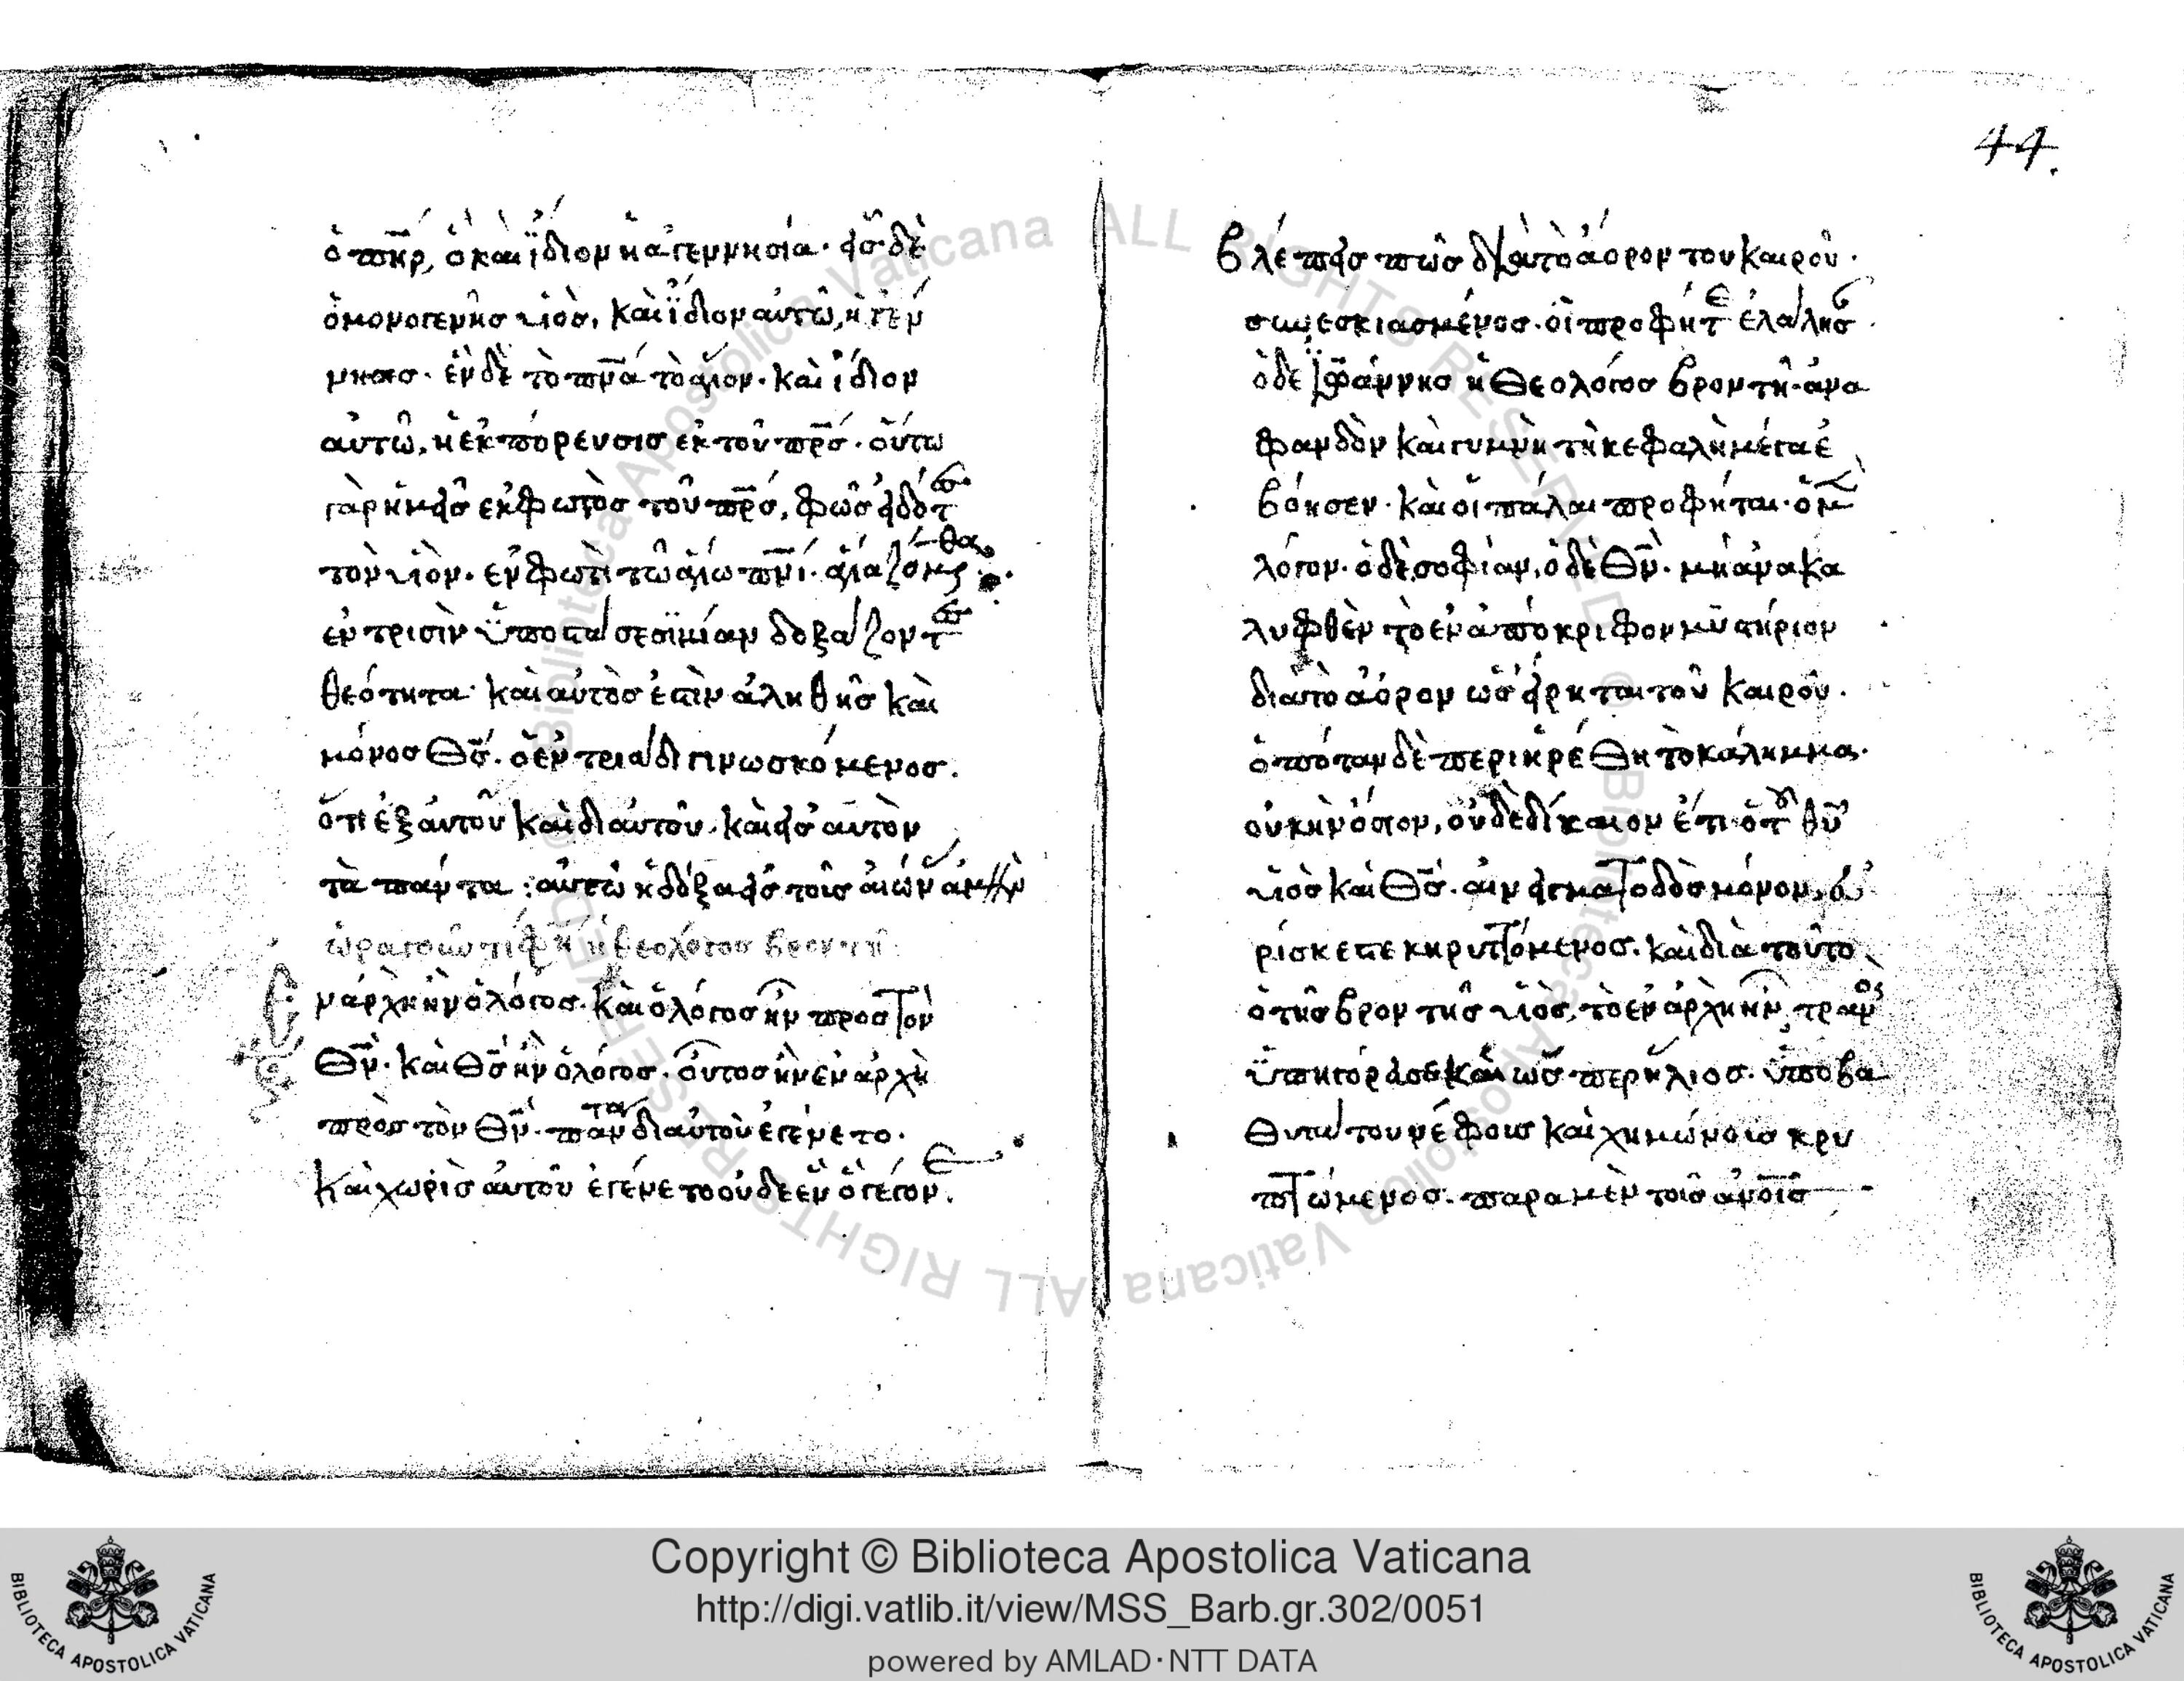 ὁ πηρ, ὁ καὶ ἴδιον ἡ ἀγεννησία· εἷσ δὲ
ὁ μονογενὴσ υἱὸσ, καὶ ἴδιον αὐτῶ, ἡ γέν
νησισ· ἓν δὲ τὸ πνα τὸ ἅγιον· καὶ ἴδιον
αὐτῶ, ἡ ἐκπόρευσισ ἐκ τοῦ πρσ· οὕτω
γὰρ ἡμεῖσ ἐκ φωτὸσ τοῦ πρσ, φῶσ εἰδότ
τὸν υἱὸν· ἐν φωτὶ τῶ ἁγίω πνι· ἁγιαζόμεθα
ἐν τρισὶν ὑποστάσεσϊ μίαν δοξάζοντ
θεότητα· καὶ αὐτὸσ ἐστὶν ἀληθὴσ καὶ
μόνοσ Θσ· ὁ ἐν τριάδι γινωσκόμενοσ.
ὅτι ἐξ αὐτοῦ καὶ δι αὐτοῦ, καὶ εἰσ αὐτὸν
τὰ πάντα : αὐτῶ ἡ δόξα εἰσ τοὺσ αἰῶν ἀμὴν
θεολόγου βροντὴ
ν ἀρχῆ ἦν ὁ λόγοσ· καὶ ὁ λόγοσ ἦν προσ τὸν
Θν· καὶ Θσ ἦν ὁ λόγοσ· οὗτοσ ἦν ἐν ἀρχῆ
πρὸσ τὸν Θν· πάντα δι αὐτοῦ ἐγένετο·
καὶ χωρὶσ αὐτοῦ ἐγένετο οὐδε ἓν ὃ γέγον.
44.
βλέπεισ πῶσ διὰ τὸ ἄορον του καιροῦ·
συνεσκιασμένοσ· οἱ προφήτ ἐλάλησ
ὁ δε Ἰωάννησ ἡ Θεολόγοσ βροντὴ· ἀνα
φανδὸν καὶ γυμνῆ τῆ κεφαλῆ μέγα ἐ
βόησεν· καὶ οἱ πάλαι προφῆται· ὁ μ
λόγον· ὁ δὲ σοφίαν, ὁ δὲ Θν· μὴ ἀνακα
λυφθὲν τὸ ἐν ἀποκρίφον μυστήριον
διὰ τὸ ἄορον ὡσ εἴρηται τοῦ καιροῦ·
ὁπόταν δὲ περιηρέΘη τὸ κάλημμα·
οὐκ ἦν ὅσιον, οὐδὲ δίκαιον ἔτι ὁ τ θυ
υἱὸσ καὶ Θσ· αἰνείγματοδὸσ μόνον, ὁ
ρίσκετε κηρυττόμενοσ· καὶ διὰ τοῦτο
ὁ τῆσ βροντῆσ υἱὸσ, τὸ ἐν ἀρχῆ ἦν, τραν
ὑπηγόρασε καὶ ὡσ περ ἥλιοσ· ὑπο βα
Θυτάτου νέφουσ καὶ χημῶνοισ κρυ
πτώμενοσ· παρα μὲν τοῖσ ἀνοισ
Copyright © Biblioteca Apostolica Vaticana
http://digi.vatlib.it/view/MSS_Barb.gr.302/0051
powered by AMLAD·NTT DATA
BIBLIOTECA APOSTOLICA VATICANA
BIBLIOTECA APOSTOLICA VATICANA